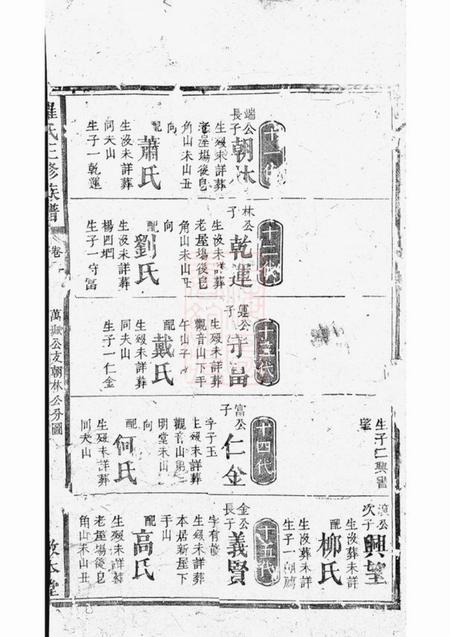 氏三修族譜
卷
公支朝林公分圖
本堂
端公
長子
朝林
生歿未詳葬
老屋場後皂
角山未山丑
向
配
蕭氏
生歿未詳葬
同夫山
生子一乾運
十二代
林公
子
乾運
生沒未詳葬
老屋場後皂
角山未山丑
向
配
劉氏
生沒未詳葬
楊四垇
生子一守富
十三代
運公
子
守富
生歿未詳葬
觀音山下手
午山子
向
配
戴氏
生歿未詳葬
同夫山
生子一仁金
生子二興
肇
十四代
富公
子
仁金
字子玉
生歿未詳葬
觀音山第二
明堂未山
向
配
何氏
生歿未詳葬
同夫山
公
次子
興望
生沒未詳
配
柳氏
生沒未詳葬
生子一
十五代
金公
長子
義賢
字有
生沒未詳葬
本居新屋下
手山
配
高氏
生歿未詳葬
老屋場後皂
角山未山丑